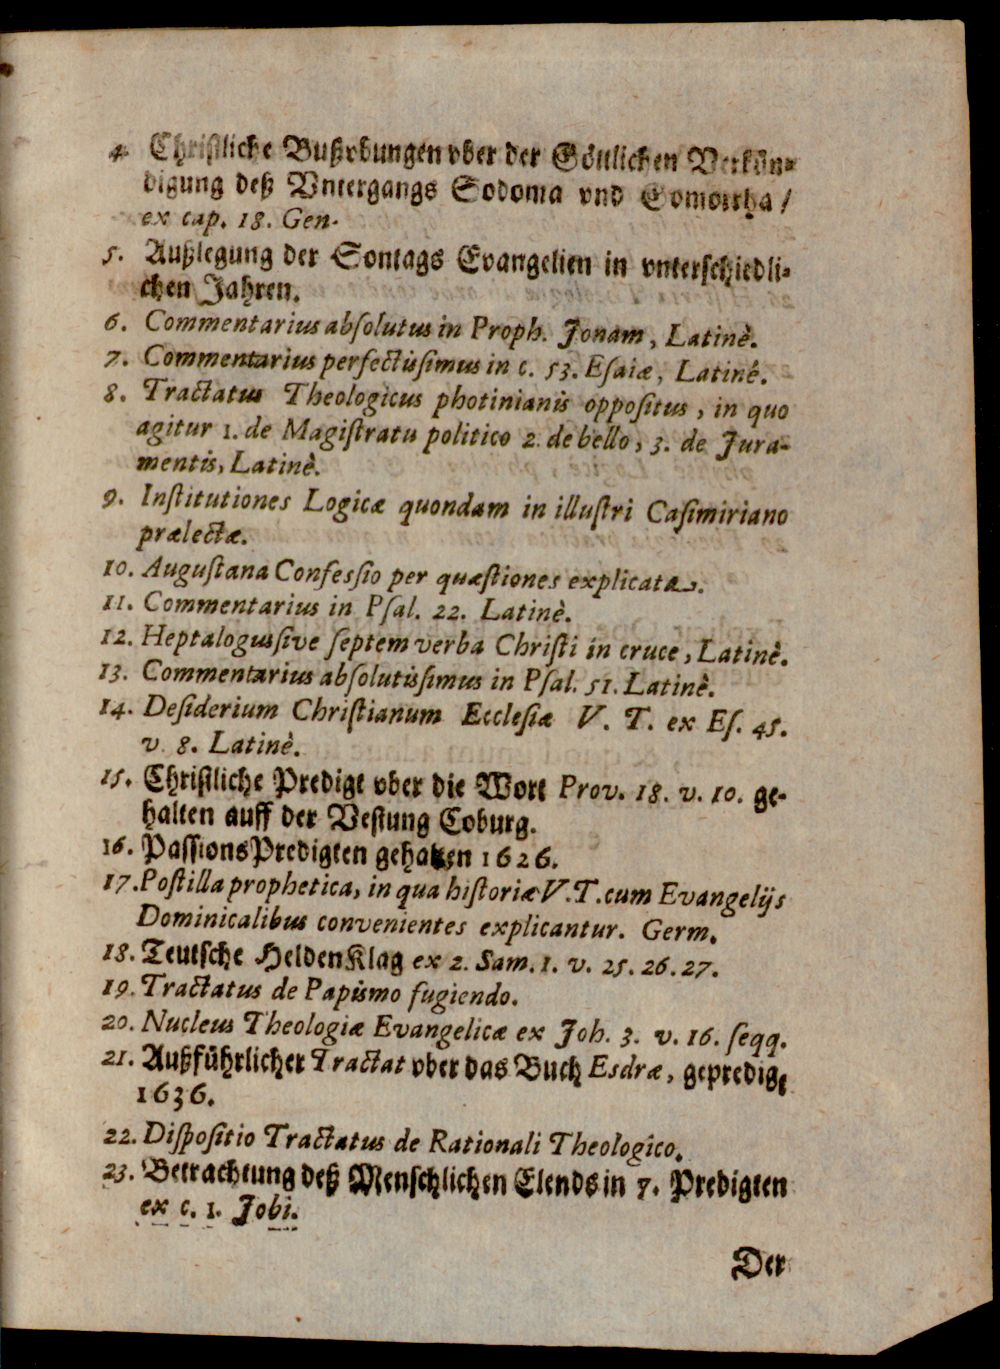 4. Christliche Bußvbungen vber der Göttlichen Verkün-
digung deß Vntergangs Sodoma vnd Gomorrha /
ex cap. 18. Gen.
5. Außlegung der Sontags Evangelien in vnterschiedli-
chen Jahren.
6. Commentarius absolutus in Proph. Jonam, Latinè.
7. Commentarius perfectissimus in c. 53. Esaiæ, Latinè.
8. Tractatus Theologicus photinianis oppositus, in quo
agitur 1. de Magistratu politico 2. de bello, 3. de Jura-
mentis, Latinè.
9. Institutiones Logicæ quondam in illustri Casimiriano
prælectæ.
10. Augustana Confessio per quæstiones explicata.
11. Commentarius in Psal. 22. Latinè.
12. Heptalogus sive septem verba Christi in cruce, Latinè.
13. Commentarius absolutissimus in Psal. 51. Latinè.
14. Desiderium Christianum Ecclesiæ V. T. ex Es. 45.
v. 8. Latinè.
15. Christliche Predigt vber die Wort Prov. 18. v. 10. ge-
halten auff der Vestung Coburg.
16. PassionsPredigten gehalten 1626.
17. Postilla prophetica, in qua historiæ V. T. cum Evangelijs
Dominicalibus convenientes explicantur. Germ.
18. Teutsche HeldenKlag ex 2. Sam. 1. v. 25. 26. 27.
19. Tractatus de Papismo fugiendo.
20. Nucleus Theologiæ Evangelicæ ex Joh. 3. v. 16. seqq.
21. Außführlicher Tractat vber das Buch Esdræ, gepredigt
1636.
22. Dispositio Tractatus de Rationali Theologico.
23. Betrachtung deß Menschlichen Elends in 7. Predigten
ex c. 1. Jobi.
Der